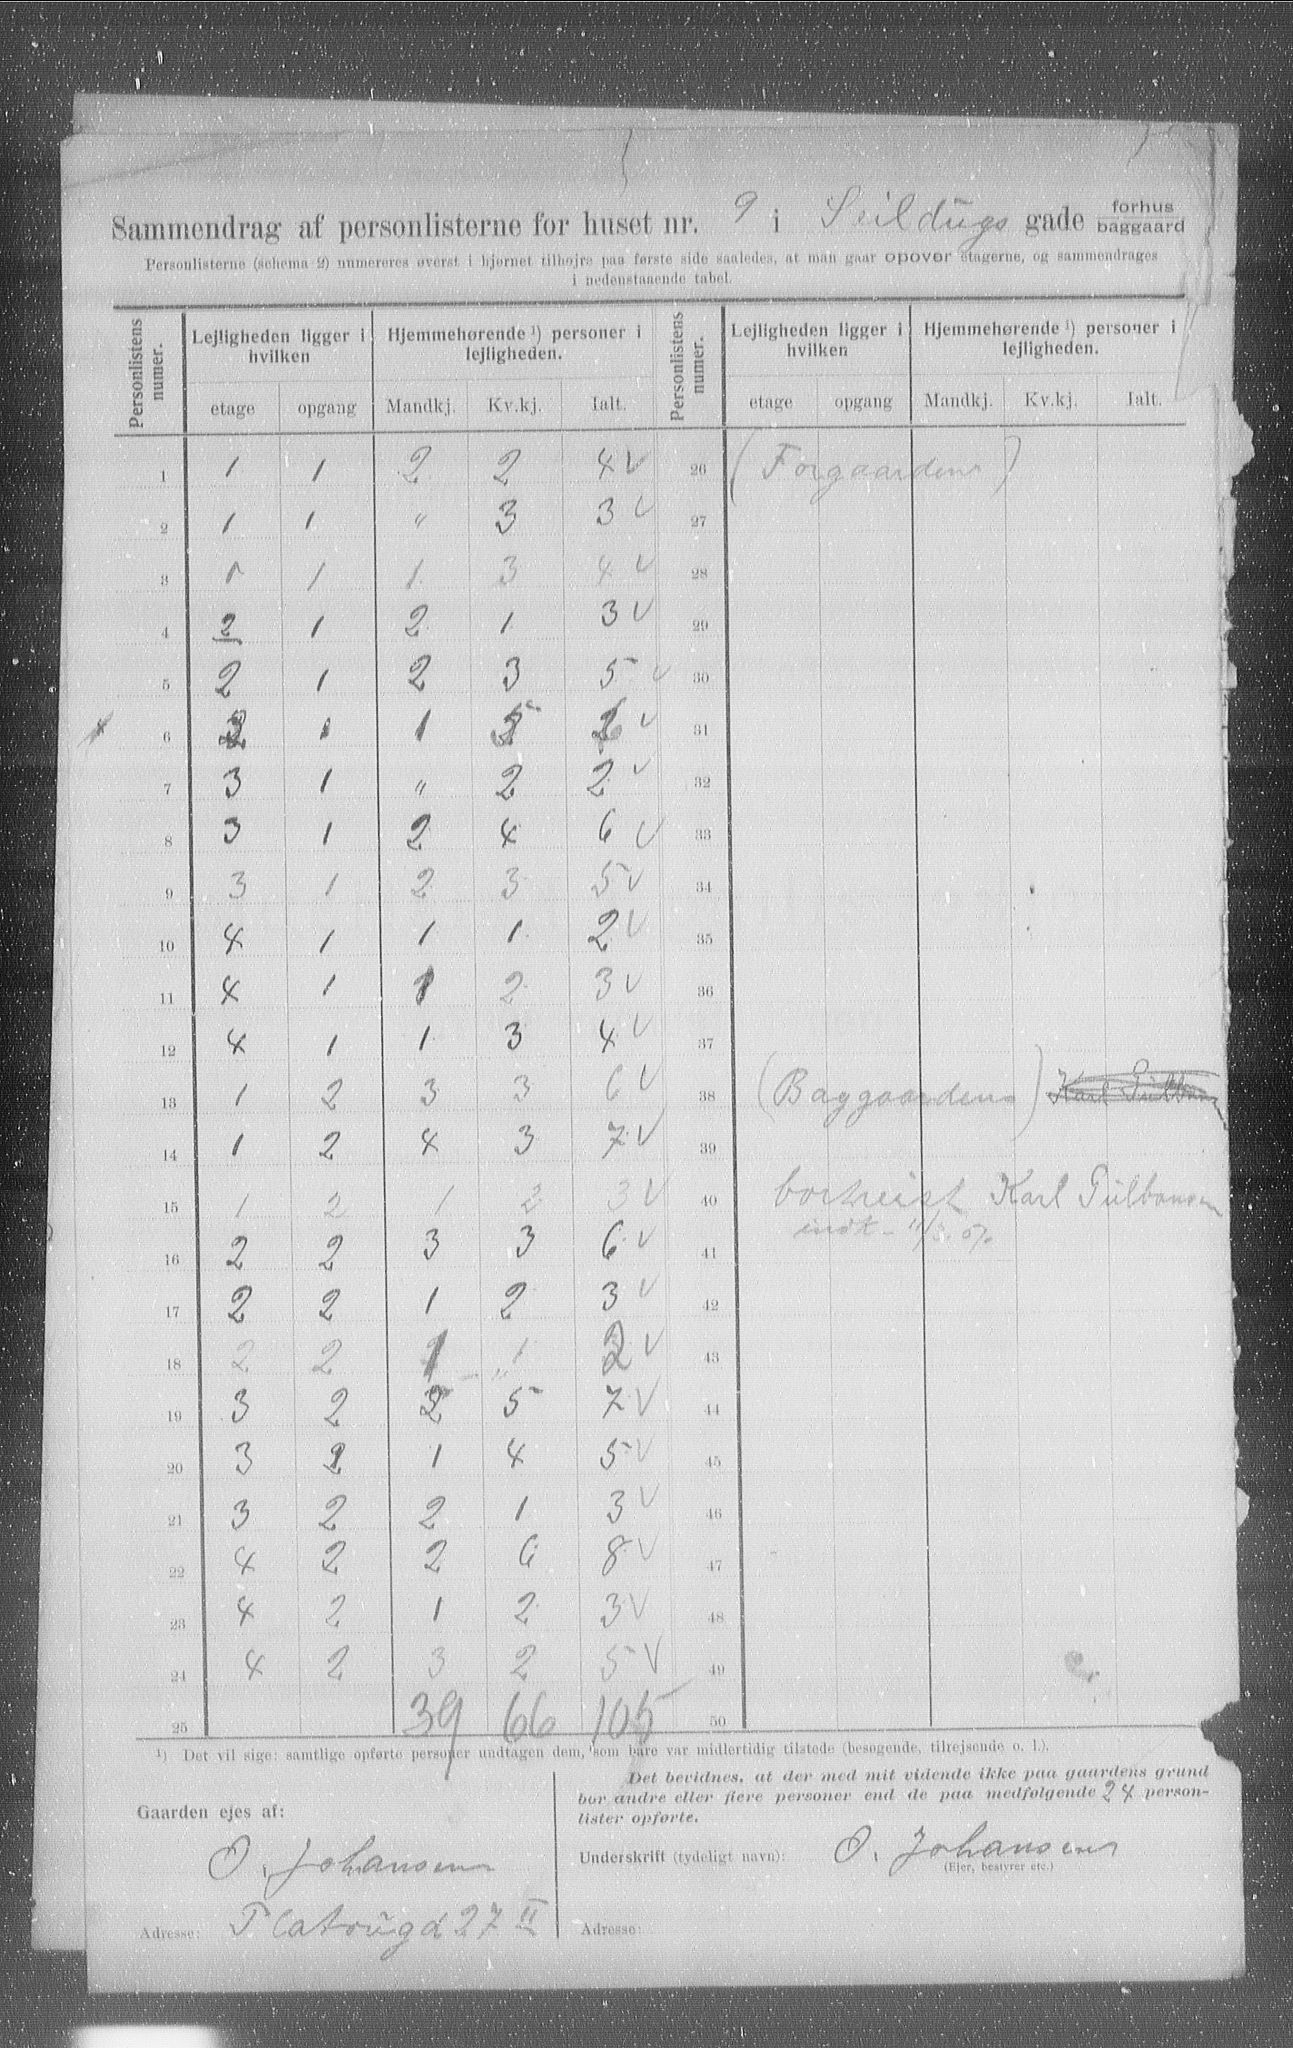 Sammendrag af personlisterne for huset nr. 9 i Seildugs gade forhus baggaard
Personlisterne (schema 2) numereres øverst i hjørnet tilhøjre paa første side saaledes, at man gaar opover etagerne, og sammendrages
i nedenstaaende tabel.
Personlistens numer. Lejligheden ligger i hvilken Hjemmehørende ¹) personer i lejligheden. Personlistens numer. Lejligheden ligger i hvilken Hjemmehørende ¹) personer i lejligheden.
etage opgang Mandkj. Kv.kj. Ialt. etage opgang Mandkj. Kv.kj. Ialt.
1 1 1 2 2 4 V 26 (Forgaarden)
2 1 1 " 3 3 V 27
3 1 1 1 3 4 V 28
4 2 1 2 1 3 V 29
5 2 1 2 3 5 V 30
6 2 1 1 5 6 V 31
7 3 1 " 2 2 V 32
8 3 1 2 4 6 V 33
9 3 1 2 3 5 V 34
10 4 1 1 1 2 V 35
11 4 1 1 2 3 V 36
12 4 1 1 3 4 V 37
13 1 2 3 3 6 V 38 (Baggaarden)
14 1 2 4 3 7 V 39
15 1 2 1 2 3 V 40 bortreist Karl
16 2 2 3 3 6 V 41 indt.
17 2 2 1 2 3 V 42
18 2 2 1 1 2 V 43
19 3 2 2 5 7 V 44
20 3 2 1 4 5 V 45
21 3 2 2 1 3 V 46
22 4 2 2 6 8 V 47
23 4 2 1 2 3 V 48
24 4 2 3 2 5 V 49
25 39 66 105 50
¹) Det vil sige: samtlige opførte personer undtagen dem, som bare var midlertidig tilstede (besøgende, tilrejsende o. l.).
Gaarden ejes af:
O. Johansen
Adresse: Platougd 27 II
Det bevidnes, at der med mit vidende ikke paa gaardens grund
bor andre eller flere personer end de paa medfølgende 24 person-
lister opførte.
Underskrift (tydeligt navn): O. Johansen
(Ejer, bestyrer etc.)
Adresse: